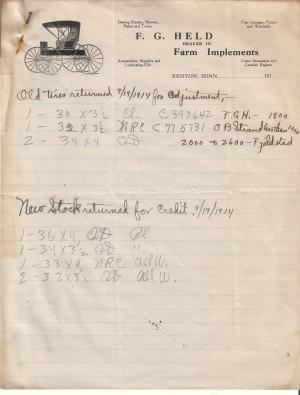 Deering Binders, Mowers, Rakes and Twine
Fine Carriages, Pumps and Windmills
F. G. HELD
DEALER IN
Farm Implements
Automobiles, Supplies and Lubricating Oils
Cream Separators and Gasoline Engines
KENYON, MINN. 191
Old tires returned 9/19/1914 for Adjustment,-
1 - 30 x 3½ Cl. C 397642 F.G.H. - 1800
1 - 32 x 3½ NRC C 775731 O B Strandemo
2 - 34 x 4 QD 2000 & 2600 - Fjelsted
New Stock returned for Credit 9/19/1914
1 - 36 x 4 QD Cl
1 - 34 x 3½ QD "
1 - 33 x 4 NRC all W.
2 - 32 x 3½ QD all W.